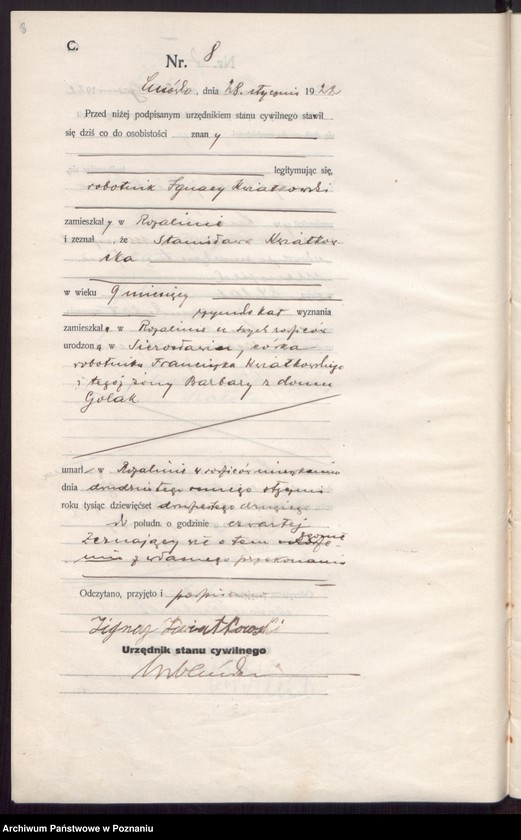 8
C.
Nr. 8
Lusówko, dnia 28. stycznia 1922
Przed niżej podpisanym urzędnikiem stanu cywilnego stawił
się dziś co do osobistości znany
legitymując się,
robotnik Ignacy Kwiatkowski
zamieszkały w Rozalinie
i zeznał, że Stanisława Kwiatkow-
ska
w wieku 9 miesięcy
rzymskokat wyznania
zamieszkała w Rozalinie u swych rodziców
urodzona w Sierosławiu, córka
robotnika Franciszka Kwiatkowskiego
i tegoż żony Barbary z domu
Golak
umarła w Rozalinie w rodziców mieszkaniu
dnia dwudziestego ósmego stycznia
roku tysiąc dziewięćset dwudziestego drugiego
połudn. o godzinie czwartej
Zeznający wie o tem zgonie
z własnego przekonania
Odczytano, przyjęto i podpisano
Ignacy Kwiatkowski
Urzędnik stanu cywilnego
Archiwum Państwowe w Poznaniu